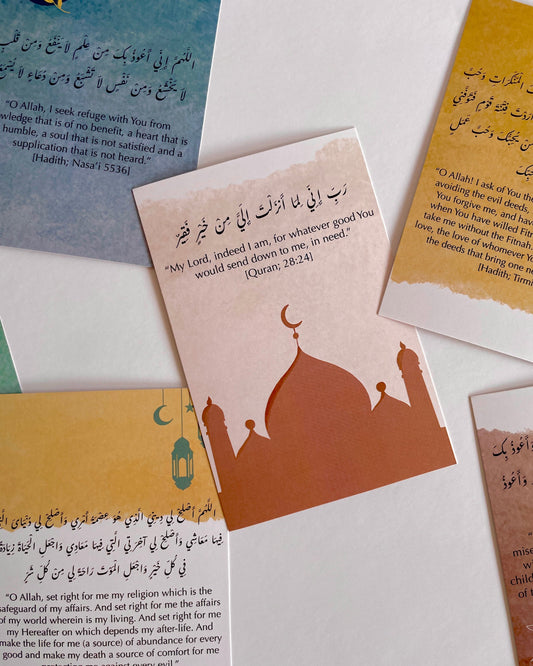 اللَّهُمَّ إِنِّي أَعُوذُ بِكَ مِنْ عِلْمٍ لَا يَنْفَعُ وَمِنْ قَلْبٍ
لَا يَخْشَعُ وَمِنْ نَفْسٍ لَا تَشْبَعُ وَمِنْ دُعَاءٍ لَا يُسْمَعُ
“O Allah, I seek refuge with You from
wledge that is of no benefit, a heart that is
humble, a soul that is not satisfied and a
supplication that is not heard.”
[Hadith; Nasa’i 5536]
رَبِّ إِنِّي لِمَا أَنْزَلْتَ إِلَيَّ مِنْ خَيْرٍ فَقِيرٌ
“My Lord, indeed I am, for whatever good You
would send down to me, in need.”
[Quran; 28:24]
الْمُنْكَرَاتِ وَحُبَّ
أَرَدْتَ فِتْنَةَ قَوْمٍ فَتَوَفَّنِي
مَنْ يُحِبُّكَ وَحُبَّ عَمَلٍ
“O Allah! I ask of You the
avoiding the evil deeds,
You forgive me, and have
when You have willed Fitn
take me without the Fitnah.
love, the love of whomever Yo
the deeds that bring one ne
[Hadith; Tirmi
اللَّهُمَّ أَصْلِحْ لِي دِينِيَ الَّذِي هُوَ عِصْمَةُ أَمْرِي وَأَصْلِحْ لِي دُنْيَايَ الَّتِي
فِيهَا مَعَاشِي وَأَصْلِحْ لِي آخِرَتِي الَّتِي فِيهَا مَعَادِي وَاجْعَلِ الْحَيَاةَ زِيَادَةً
فِي كُلِّ خَيْرٍ وَاجْعَلِ الْمَوْتَ رَاحَةً لِي مِنْ كُلِّ شَرٍّ
“O Allah, set right for me my religion which is the
safeguard of my affairs. And set right for me the affairs
of my world wherein is my living. And set right for me
my Hereafter on which depends my after-life. And
make the life for me (a source) of abundance for every
good and make my death a source of comfort for me
protecting me against every evil.”
وَأَعُوذُ بِكَ
وَأَعُوذُ
mise
w
child
of t